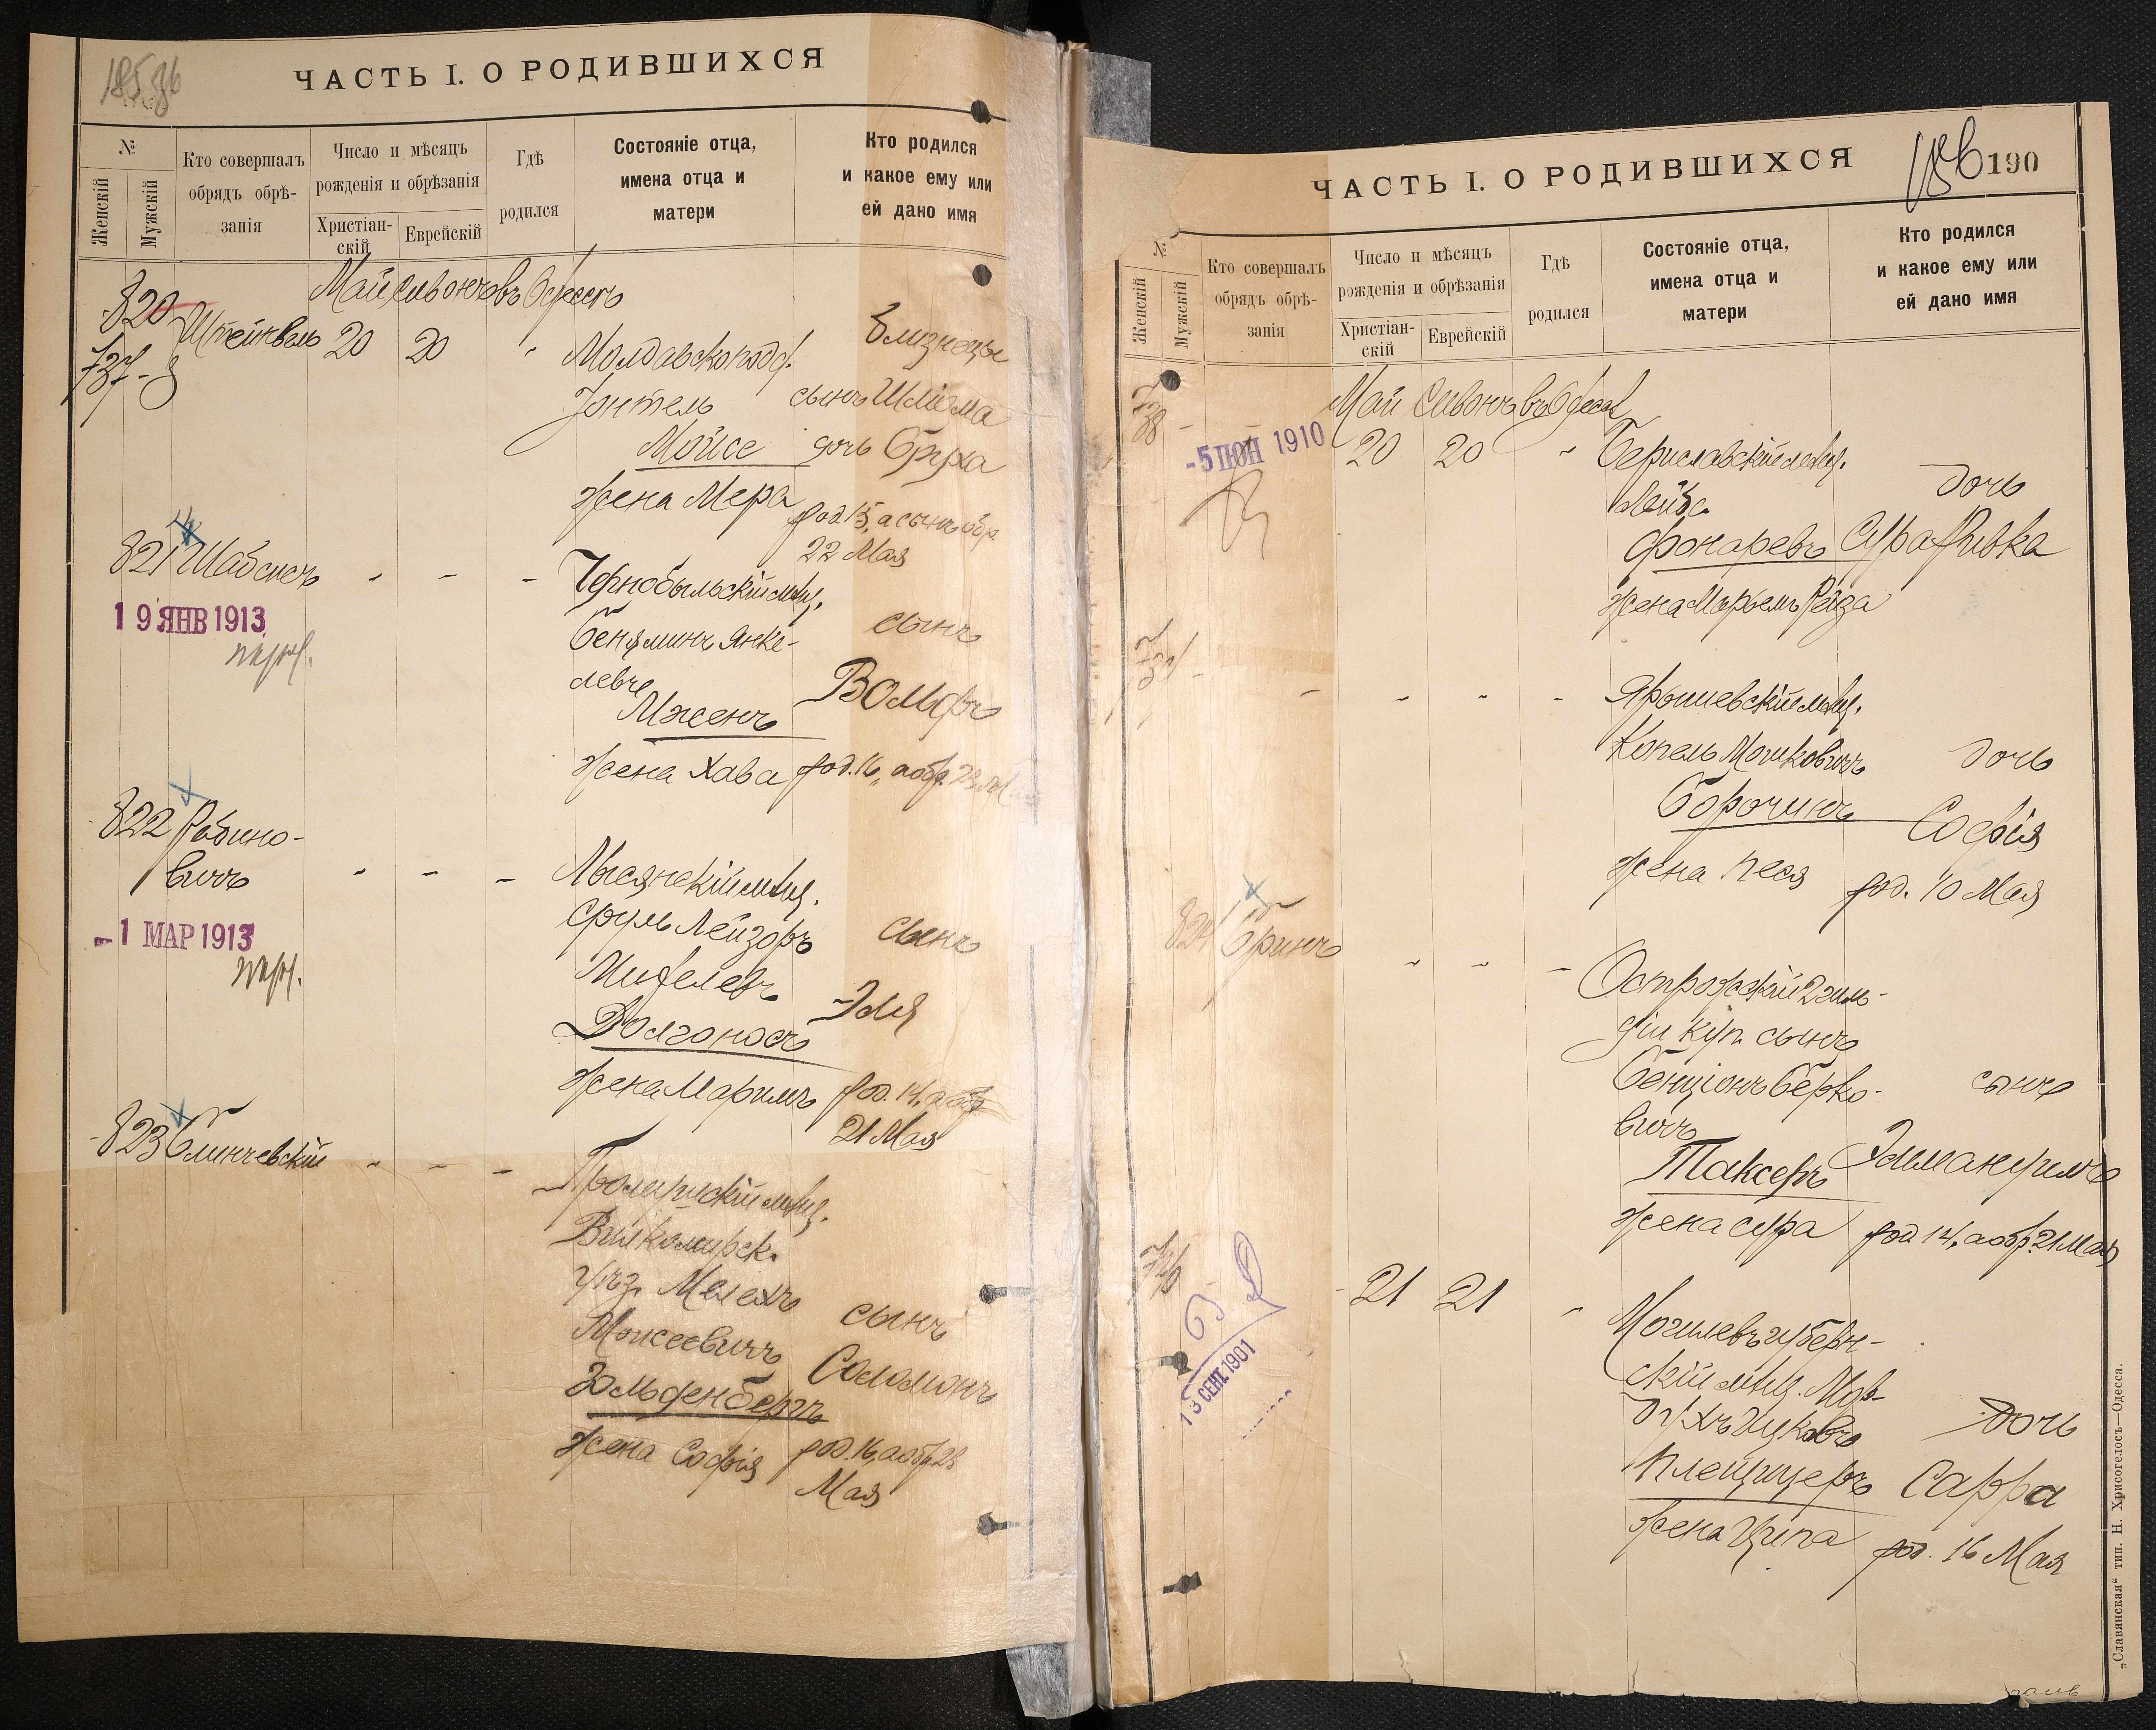 ЧАСТЬ I. О РОДИВШИХСЯ
№
Женскій
Мужскій
Кто совершалъ
обрядъ обрѣ-
занія
Число и мѣсяцъ
рожденія и обрѣзанія
Христіан-
скій
Еврейскій
Гдѣ
родился
Состояніе отца,
имена отца и
матери
Кто родился
и какое ему или
ей дано имя
Май Сивонъ въ Одессѣ
820 Штейнвель 20 20 "
737
Молдавскоподд.
Іонтель
Мойсе
жена Мера
близнецы
сынъ Шліома
дочь Бруха
род. 15, а сынъ обр.
22 Мая
821 Шабсисъ " " "
19 ЯНВ 1913
Чернобыльскій мѣщ.
Беняминъ Янке-
левъ
Мженъ
жена Хава
сынъ
Вольфъ
род. 16, а обр. 23
822 Рабино-
вичъ " " "
-1 МАР 1913
Лысянскій мѣщ.
Сруль Лейзоръ
Михелевъ
Долгоносъ
жена Маримъ
сынъ
Эля
род. 14, а обр.
21 Мая
823 Блинчевскій " " "
мѣщ.
Вилкомирск.
уѣз. Мелехъ
Моисеевичъ
Гольденбергъ
жена Софія
сынъ
Соломонъ
род. 16, а обр. 23
Мая
ЧАСТЬ I. О РОДИВШИХСЯ
186
190
№
Женскій
Мужскій
Кто совершалъ
обрядъ обрѣ-
занія
Число и мѣсяцъ
рожденія и обрѣзанія
Христіан-
скій
Еврейскій
Гдѣ
родился
Состояніе отца,
имена отца и
матери
Кто родился
и какое ему или
ей дано имя
Май Сивонъ въ Одессѣ
738 - 20 20 "
-5 ІЮН 1910
Бериславскій мѣщ.
Лейба
Фонаревъ
жена Марьемъ Рейза
дочь
Сура Ривка
739 - " " " "
Ярышевскій мѣщ.
Копель Мошковичъ
Борочинъ
жена Песя
дочь
Софія
род. 10 Мая
824 Бринъ " " "
Острожскій 2 гиль-
діи куп. сынъ
Бенціонъ Берко-
вичъ
Таксеръ
жена Сура
сынъ
Эммануилъ
род 14, а обр. 21 Мая
740 - 21 21 "
13 СЕНТ. 1901
Могилевъ губерн-
скій мѣщ. Мор-
духъ Ицковъ
Плейцицеръ
жена Ципа
дочь
Сарра
род. 16 Мая
„Славянская“ тип. Н. Хрисогелосъ—Одесса.